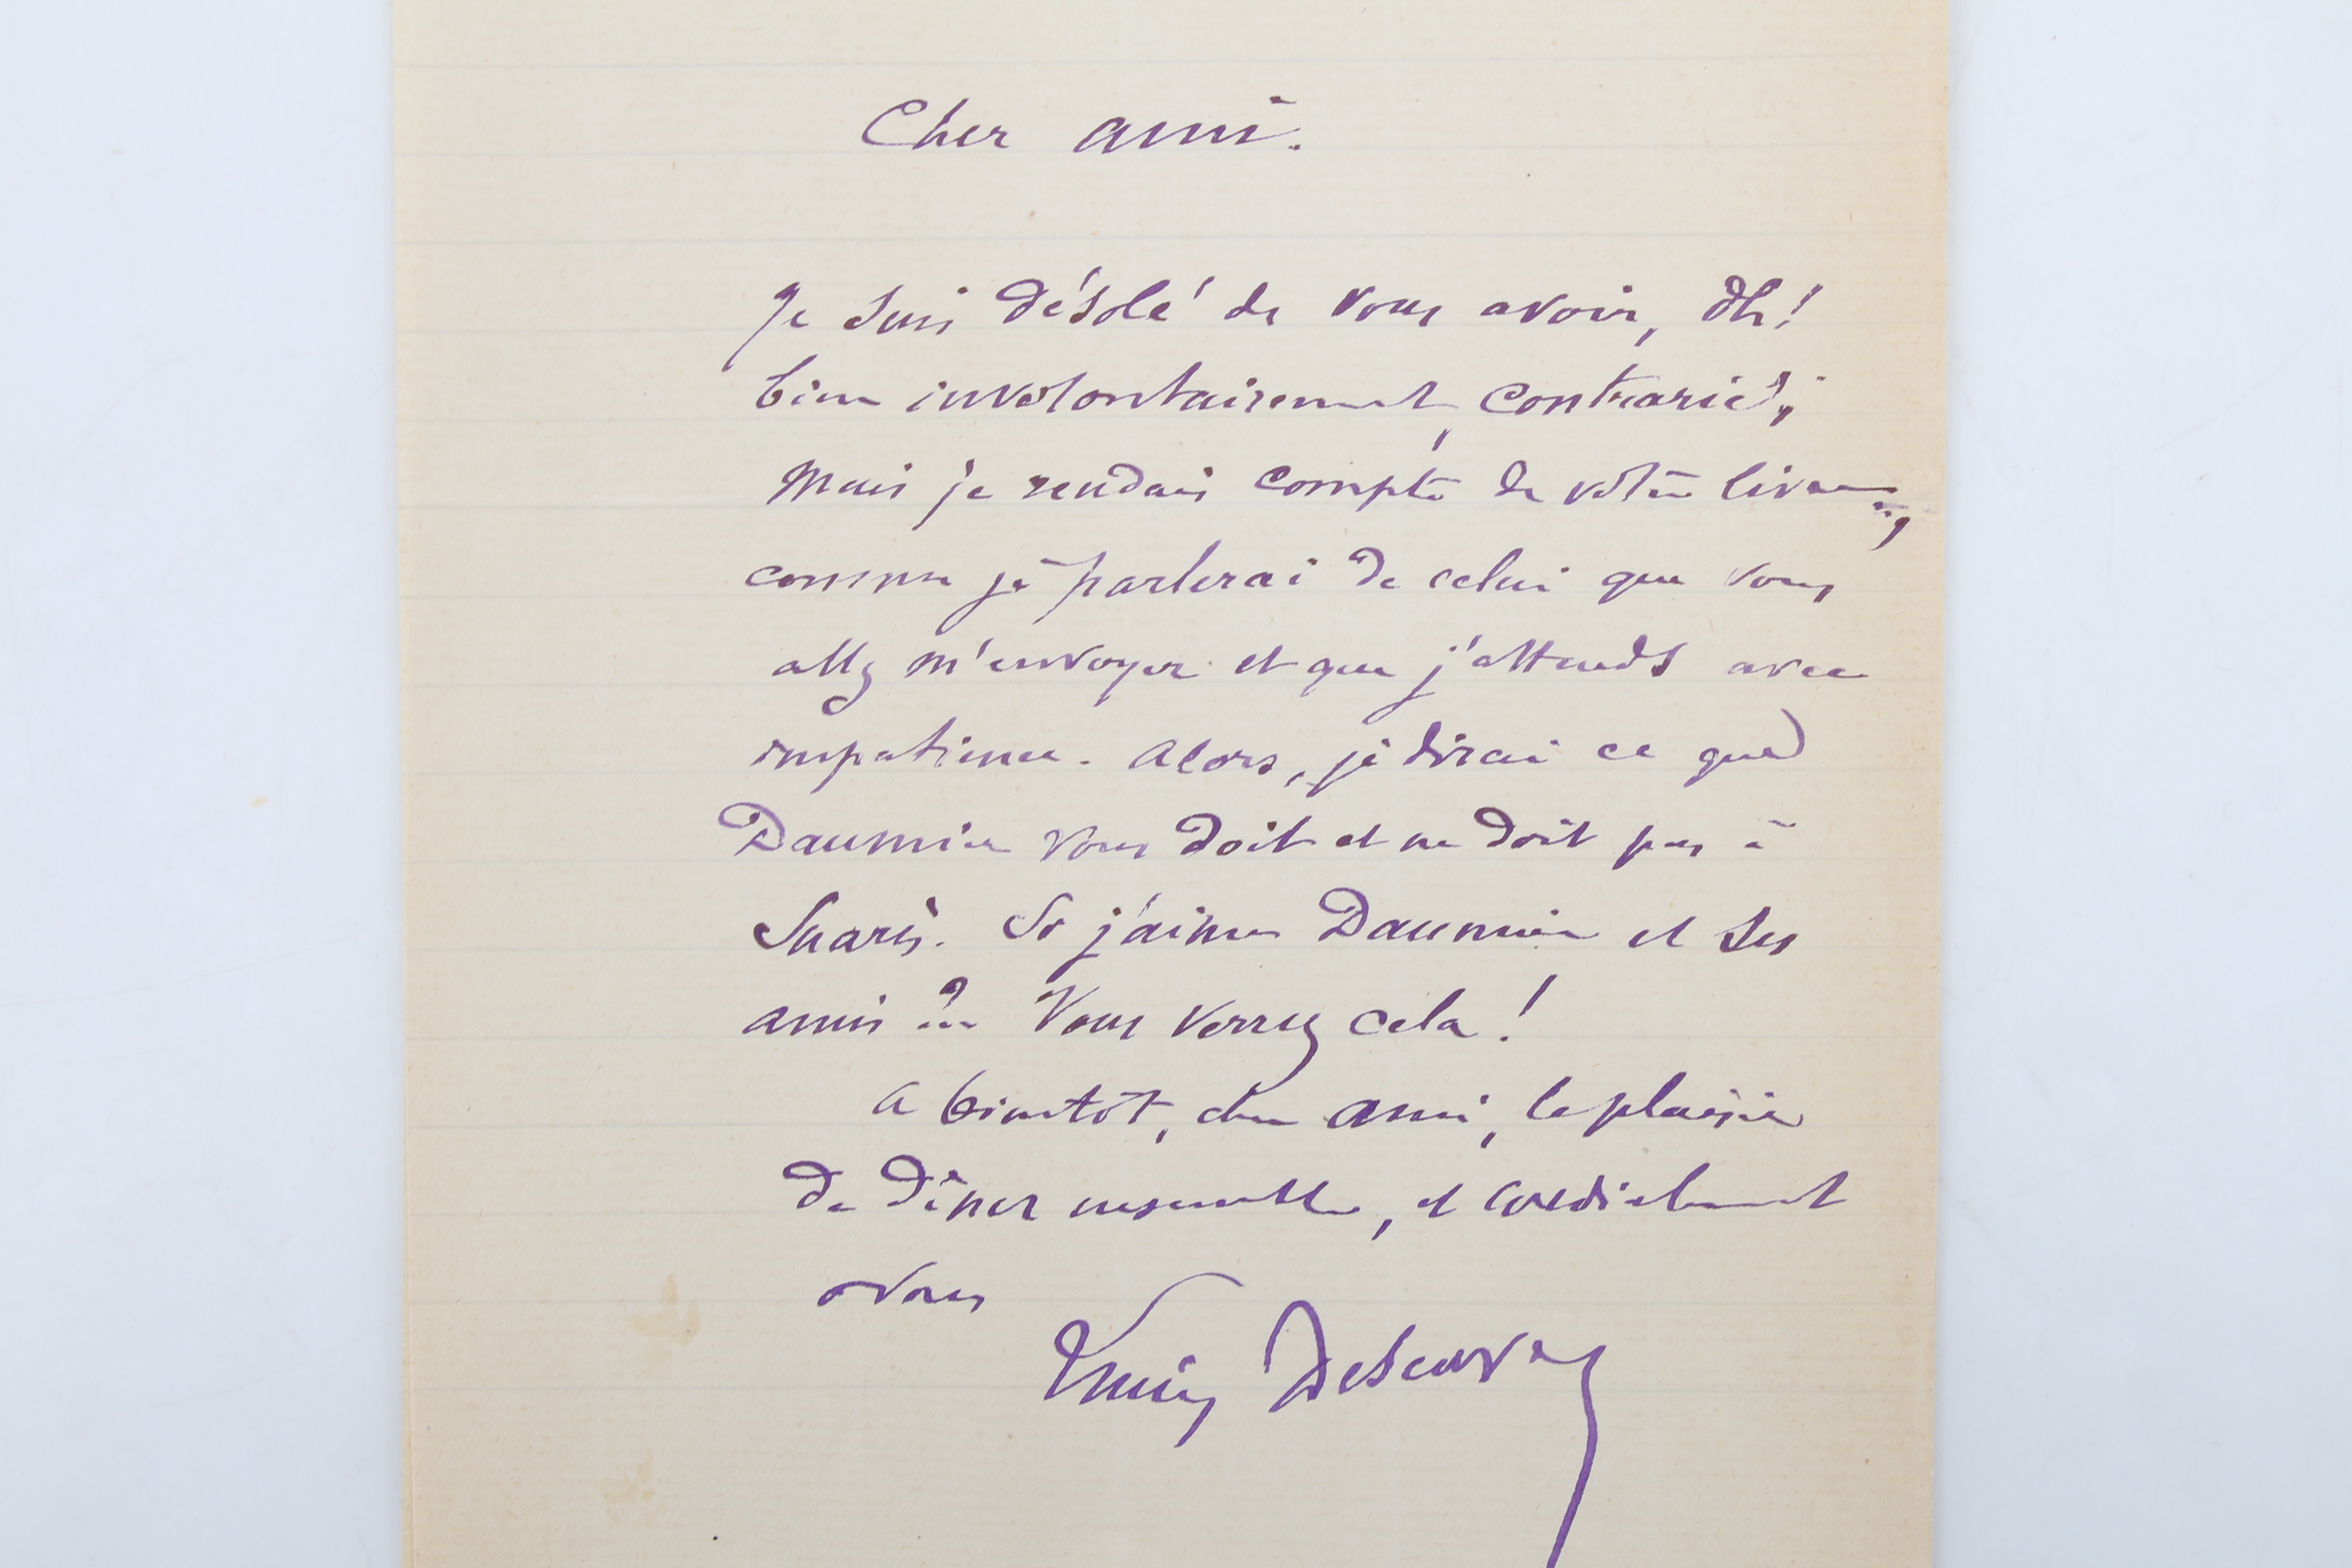 Cher ami.
Je suis désolé de vous avoir, oh!
bien involontairement, contrarié;
mais je rendais compte de votre livre,
comme je parlerai de celui que vous
allez m'envoyer et que j'attends avec
impatience. Alors, je dirai ce que
Daumier vous doit et ne doit pas à
Suarès. Si j'aime Daumier et ses
amis?.. Vous verrez cela!
A bientôt, cher ami, le plaisir
de dîner ensemble, et cordialement
à vous
Lucien Descaves